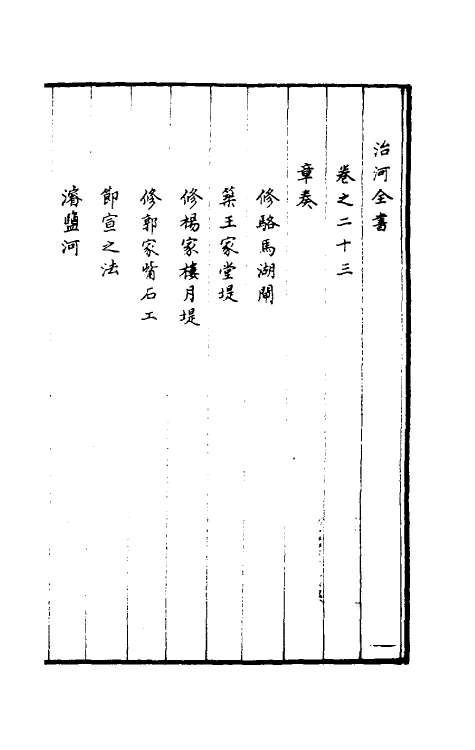 治河全書
卷之二十三
章奏
修駱馬湖閘
築王家堂堤
修楊家樓月堤
修郭家嘴石工
節宣之法
濬鹽河